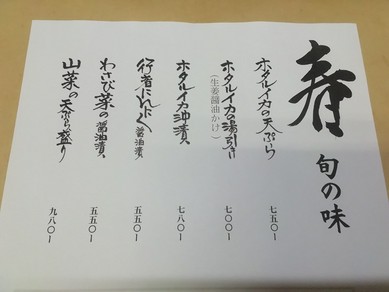 春 旬の味
ホタルイカの天ぷら 七五〇ー
ホタルイカの湯引き 七〇〇ー
(生姜醤油かけ)
ホタルイカ沖漬 七八〇ー
行者にんにく醤油漬 五五〇ー
わさび菜の醤油漬 五五〇ー
山菜の天ぷら盛り 九八〇ー